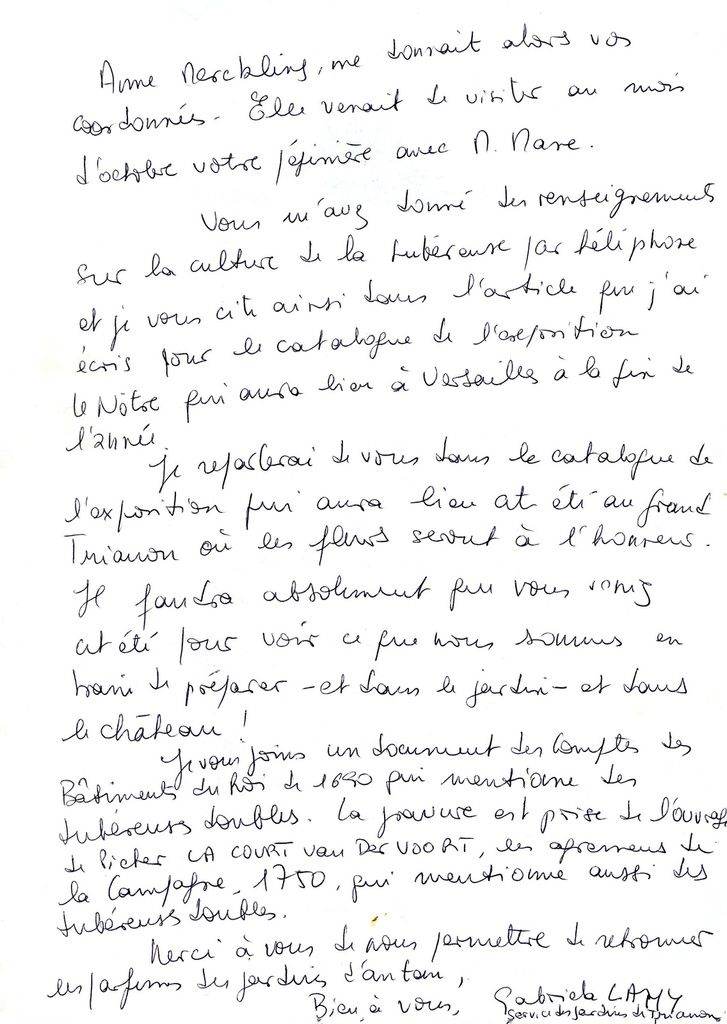 Anne Merckling, me donnait alors vos
coordonnées. Elle venait de visiter au mois
d'octobre votre pépinière avec M. Mane.
Vous m'avez donné des renseignements
sur la culture de la tubéreuse par téléphone
et je vous cite ainsi dans l'article que j'ai
écris pour le catalogue de l'exposition
le Nôtre qui aura lieu à Versailles à la fin de
l'année.
Je reparlerai de vous dans le catalogue de
l'exposition qui aura lieu cet été au grand
Trianon où les fleurs seront à l'honneur.
Il faudra absolument que vous veniez
cet été pour voir ce que nous sommes en
train de préparer - et dans le jardin - et dans
le château !
Je vous joins un document des Comptes des
Bâtiments du Roi de 1690 qui mentionne des
tubéreuses doubles. La gravure est prise de l'ouvrage
de Pieter LA COURT van Der VOORT, les agremens de
la Campagne, 1750, qui mentionne aussi des
tubéreuses doubles.
Merci à vous de nous permettre de retrouver
les parfums des jardins d'antan,
Bien à vous, Gabriela LAMY
Service des Jardins de Trianon